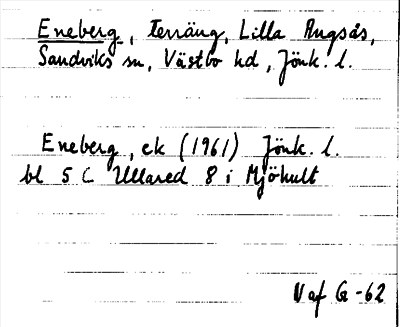 Eneberg, terräng, Lilla Ängsås,
Sandviks sn, Västbo hd, Jönk. l.
Eneberg, ek (1961) Jönk. l.
bl 5 C Ullared 8 i Mjöhult
V af G -62